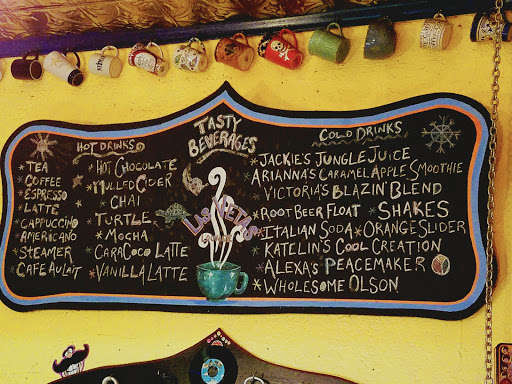 TASTY
BEVERAGES
HOT DRINKS
* TEA
* COFFEE
* ESPRESSO
* LATTE
* CAPPUCCINO
* AMERICANO
* STEAMER
* CAFE AU LAIT
* HOT CHOCOLATE
* MULLED CIDER
* CHAI
* TURTLE
* MOCHA
* CARACOCO LATTE
* VANILLA LATTE
COLD DRINKS
* JACKIE'S JUNGLE JUICE
ARIANNA'S CARAMEL APPLE SMOOTHIE
VICTORIA'S BLAZIN' BLEND
* ROOT BEER FLOAT * SHAKES
* ITALIAN SODA * ORANGE SLIDER
* KATELIN'S COOL CREATION
* ALEXA'S PEACEMAKER
* WHOLESOME OLSON